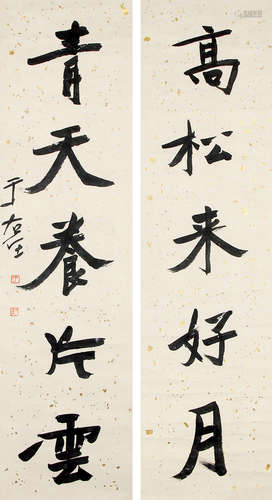 高松来好月
青天養片雲
于右任